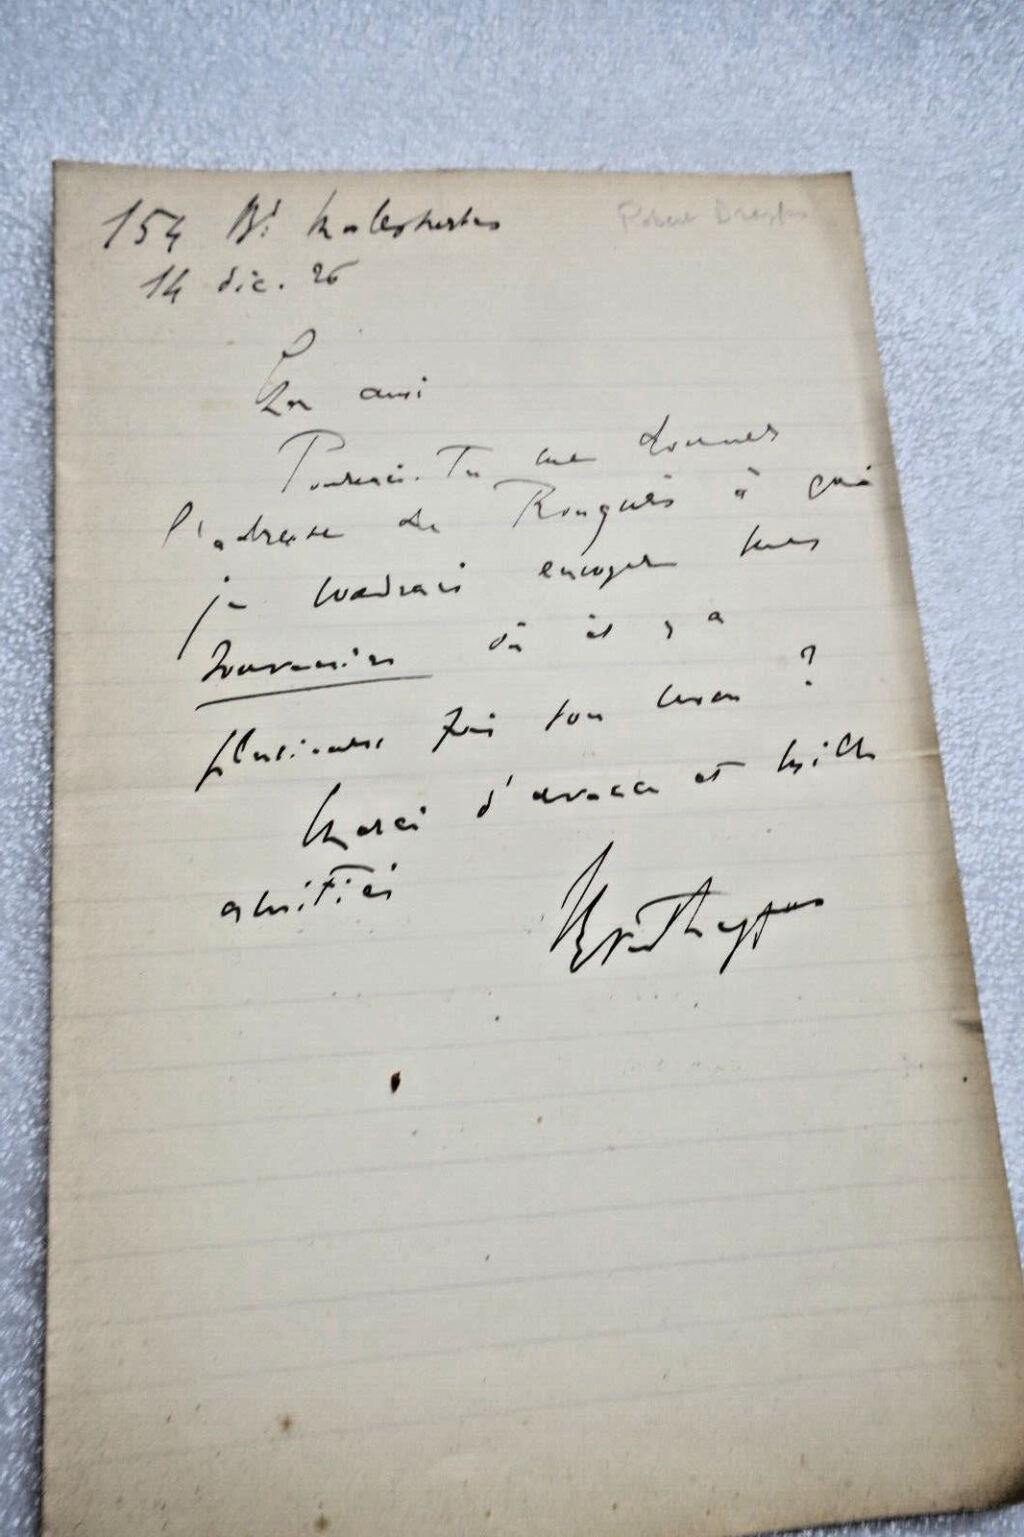 154 Bd Malesherbes
Robert Dreyfus
14 déc. 26
Mon ami
Pourrais-Tu me donner
l'adresse de Rouguès à qui
je voudrais envoyer mes
Souvenirs où il y a
plusieurs fois son nom ?
Merci d'avance et mille
amitiés